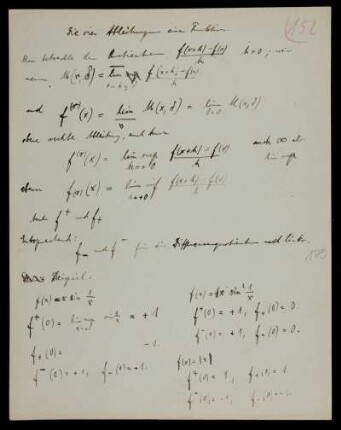 Die vier Ableitungen einer Funktion.
152
Man betrachte den Quotienten f(x+h)-f(x) / h h>0; wir
M(x,δ) = f(x+h)-f(x) / h
und f^(+)(x) = lim M(x,δ) = lim M(x,δ)
obere rechte Ableitung, und kurz
f^(+)(x) = lim sup f(x+h)-f(x) / h auch ∞ oder
ebenso f_(+)(x) = lim inf f(x+h)-f(x) / h
f^+ und f_+
Entsprechend:
f_- und f^- für die Differenzenquotienten nach links.
Beispiel.
f(x) = x sin 1/x
f^+(0) = = +1
f_+(0) = -1.
f^-(0) = +1, f_-(0) = -1.
f(x) = x sin² 1/x
f^+(0) = +1, f_+(0) = 0.
f^-(0) = +1, f_-(0) = 0.
f(x) = |x|
f^+(0) = 1, f_+(0) = 1
f^-(0) = -1, f_-(0) = -1.